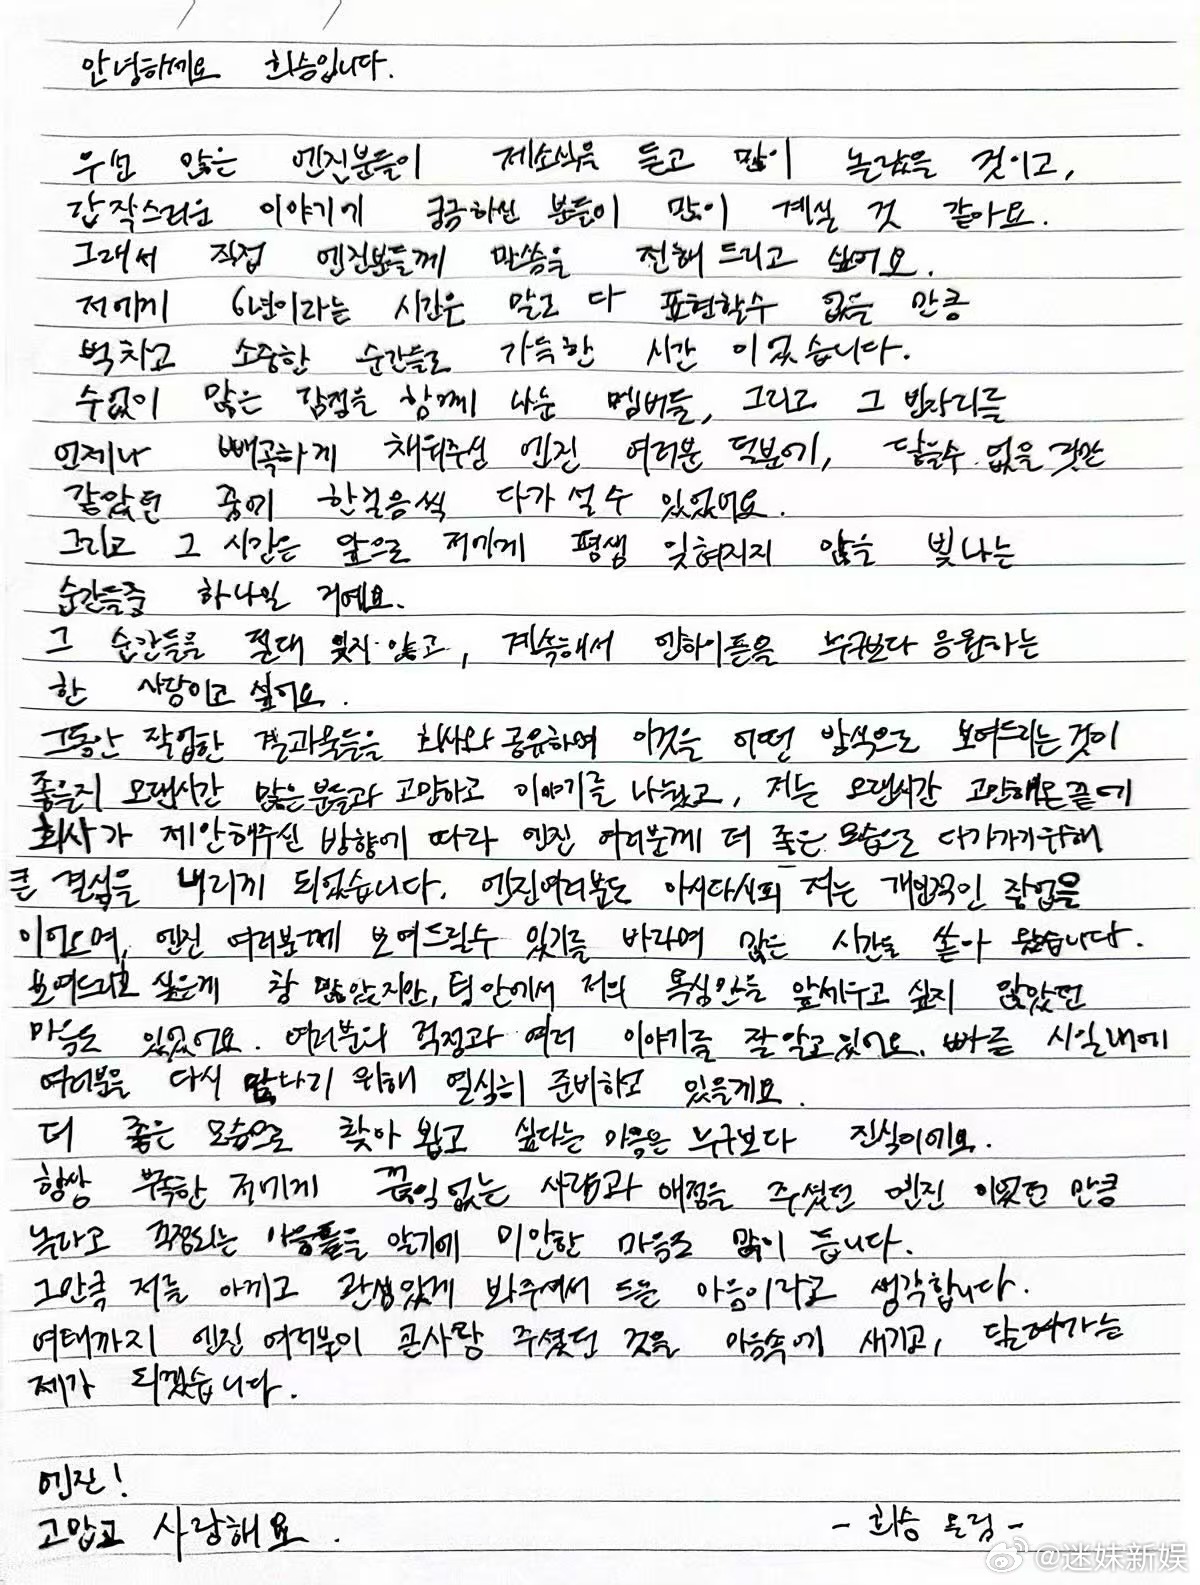 안녕하세요 희승입니다.
우선 많은 엔진분들이 제소식을 듣고 많이 놀랐을 것이고,
갑작스러운 이야기에 궁금하신 분들이 많이 계실 것 같아요.
그래서 직접 엔진분들께 말씀을 전해드리고 싶어요.
저에게 6년이라는 시간은 말로 다 표현할수 없을 만큼
벅차고 소중한 순간들로 가득한 시간 이었습니다.
수없이 많은 감정을 함께 나눈 멤버들, 그리고 그 빈자리를
언제나 빼곡하게 채워주신 엔진 여러분 덕분에, 닿을수 없을 것만
같았던 꿈에 한걸음씩 다가 설 수 있었어요.
그리고 그 시간은 앞으로 저에게 평생 잊혀지지 않을 빛나는
순간들중 하나일 거예요.
그 순간들을 절대 잊지 않고, 계속해서 엔하이픈을 누구보다 응원하는
한 사람이고 싶어요.
그동안 작업한 결과물들을 회사와 공유하며 이것을 어떤 방식으로 보여드리는것이
좋을지 오랜시간 많은분들과 고민하고 이야기를 나눴고, 저는 오랜시간 고민해온끝에
회사가 제안해주신 방향에 따라 엔진 여러분께 더 좋은 모습으로 다가가기위해
큰 결심을 내리게 되었습니다. 엔진여러분도 아시다시피 저는 개인적인 작업을
이어오며, 엔진 여러분께 보여드릴수 있기를 바라며 많은 시간을 쏟아 왔습니다.
보여드리고 싶은게 참 많았지만, 팀 안에서 저의 욕심만을 앞세우고 싶지 않았던
마음도 있었어요. 여러분의 걱정과 여러 이야기를 잘 알고있어요. 빠른 시일내에
여러분을 다시 만나기 위해 열심히 준비하고 있을게요.
더 좋은 모습으로 찾아 뵙고 싶다는 마음은 누구보다 진심이에요.
항상 부족한 저에게 끊임없는 사랑과 애정을 주셨던 엔진 이었던 만큼
놀라고 걱정되는 마음들을 알기에 미안한 마음도 많이 듭니다.
그만큼 저를 아끼고 관심있게 봐주셔서 드는 마음이라고 생각합니다.
여태까지 엔진 여러분이 큰사랑 주셨던 것을 마음속에 새기고, 달려가는
제가 되겠습니다.
엔진!
고맙고 사랑해요.
- 희승 드림 -
@迷妹新娱